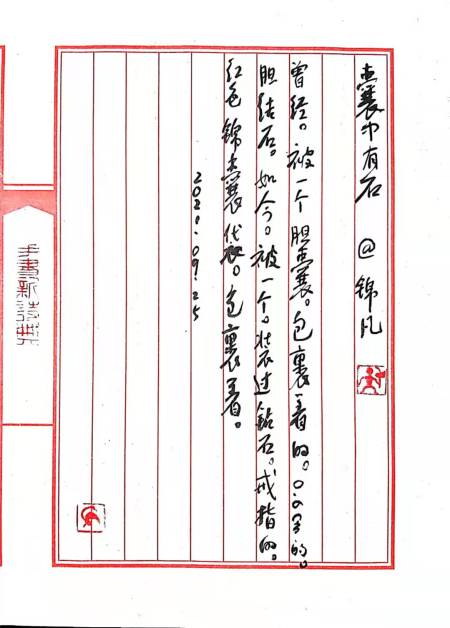 囊中有石 @锦凡
曾经。被一个胆囊。包裹着的。0.6
胆结石。如今。被一个。装过钻石。戒指的。
红色锦囊袋。包裹着。
2021.09.25
手书新诗典